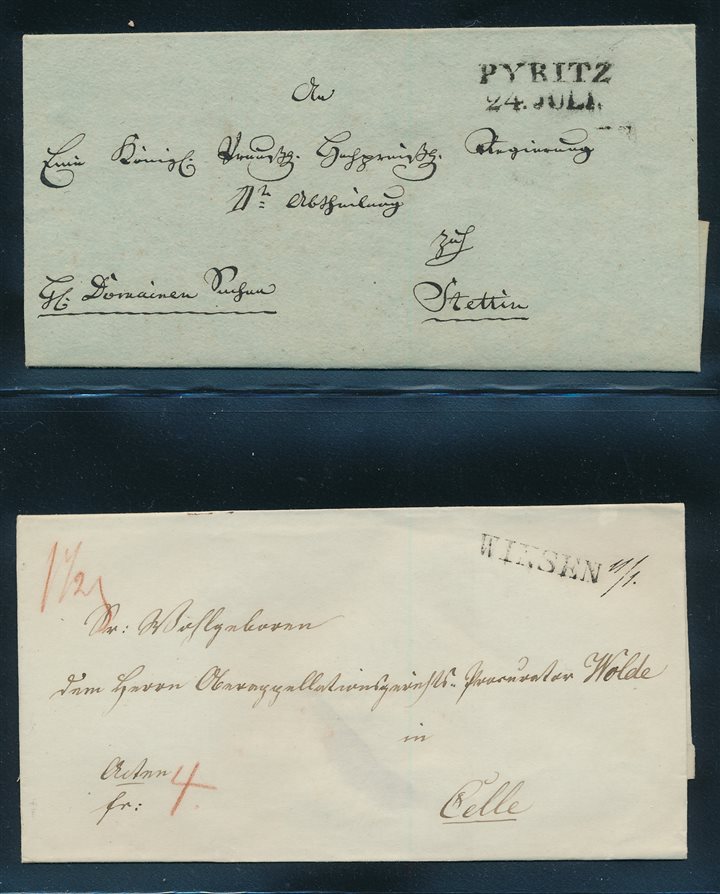 PYRITZ
24. JULI.
An
Eine Königl. Preuß. Hochpreißl. Regierung
II.te Abtheilung
zu
Stettin
Domainen
WINSEN
Sr: Wohlgeboren
dem Herrn Oberappellationsgerichts-Procurator Wolde
in
Celle
Acten
fr:
4
1 1/2